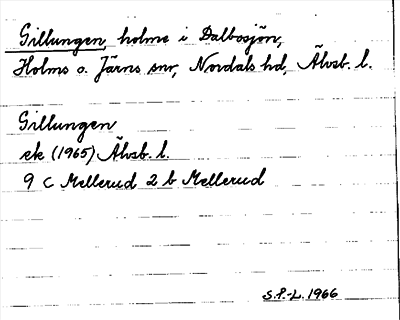 Gillungen, holme i Dalbosjön,
Holms o. Järns snr, Nordals hd, Älvsb. l.
Gillungen
ek (1965) Älvsb. l.
9 C Mellerud 2 b Mellerud
S.P.-L. 1966